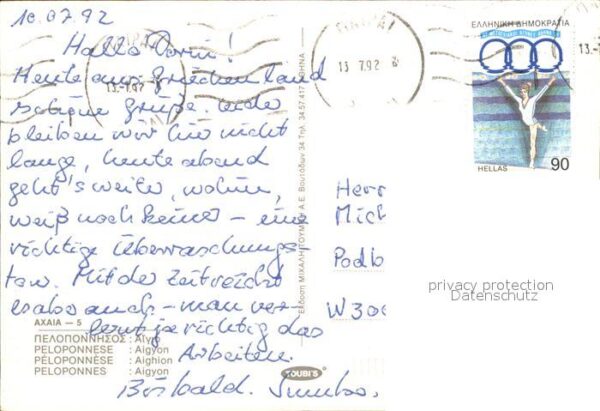 10.07.92
Hallo Dorn!
Heute aus Griechenland
schöne Grüße. Leider
bleiben wir hie nicht
lange, heute abend
geht's weiter, wohin,
weiß noch keiner - eine
richtige Überraschungs-
tour. Mit der Zeit reicht
es aber auch - man ver-
lernt ja richtig das
Arbeiten.
Bis bald.
13.7.92
13 7.92
13.
ΕΛΛΗΝΙΚΗ ΔΗΜΟΚΡΑΤΙΑ
HELLAS
90
Έκδοση ΜΙΧΑΛΗ ΤΟΥΜΠΗ Α.Ε. Βουτάδων 34 Τηλ. 34.57.417 ΑΘΗΝΑ
Herr
Mich
Podb
W 300
privacy protection
Datenschutz
ΑΧΑΙΑ — 5
ΠΕΛΟΠΟΝΝΗΣΟΣ :
PELOPONNESE : Aigyon
PÉLOPONNÈSE : Aighion
PELOPONNES : Aigyon
TOUBI'S